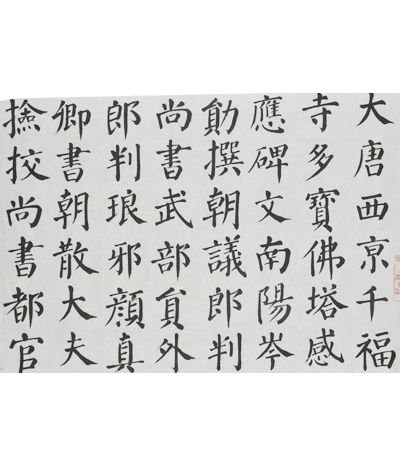 大唐西亰千福
寺多寶佛塔感
應碑文南陽岑
勛撰朝議郎判
尚書武部貟外
郎判琅邪顔真
卿書朝散大夫
撿挍尚書都官